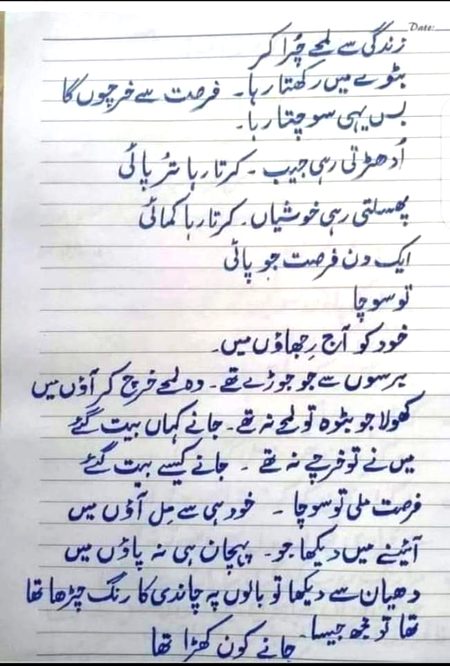 Date:
زندگی سے لمحے چُرا کر
بٹوے میں رکھتا رہا۔ فرصت سے خرچوں گا
بس یہی سوچتا رہا۔
اُدھڑتی رہی جیب ۔ کرتا رہا تُرپائی
پھسلتی رہی خوشیاں ۔ کرتا رہا کمائی
ایک دن فرصت جو پائی
تو سوچا
خود کو آج رِجھاؤں میں۔
برسوں سے جو جوڑے تھے ۔ وہ لمحے خرچ کر آؤں میں
کھولا جو بٹوہ تو لمحے نہ تھے ۔ جانے کہاں بیت گئے
میں نے تو خرچے نہ تھے ۔ جانے کیسے بیت گئے
فرصت ملی تو سوچا ۔ خود ہی سے مِل آؤں میں
آئینے میں دیکھا جو ۔ پہچان ہی نہ پاؤں میں
دھیان سے دیکھا تو بالوں پہ چاندی کا رنگ چڑھا تھا
تھا تو مجھ جیسا ۔ جانے کون کھڑا تھا